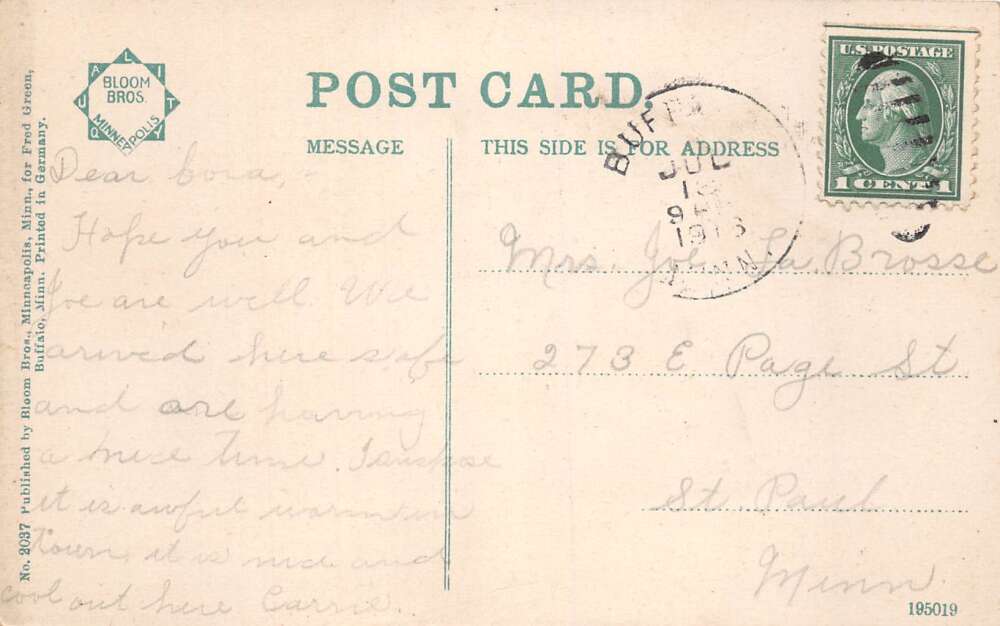 No. 2037 Published by Bloom Bros., Minneapolis, Minn., for Fred Green,
Buffalo, Minn. Printed in Germany.
QUALITY
BLOOM
BROS.
MINNEAPOLIS
POST CARD.
MESSAGE
THIS SIDE IS FOR ADDRESS
U.S. POSTAGE
1 CENT 1
BUFF
JUL
9
191
MINN.
Dear Cora,-
Hope you and
Joe are well We
arrived here safe
and are having
a nice time. I suspose
it is awful warm in
town, it is nice and
cool out here Carrie.
Mrs. Joe La Brosse
273 E. Page St
St. Paul
Minn.
195019